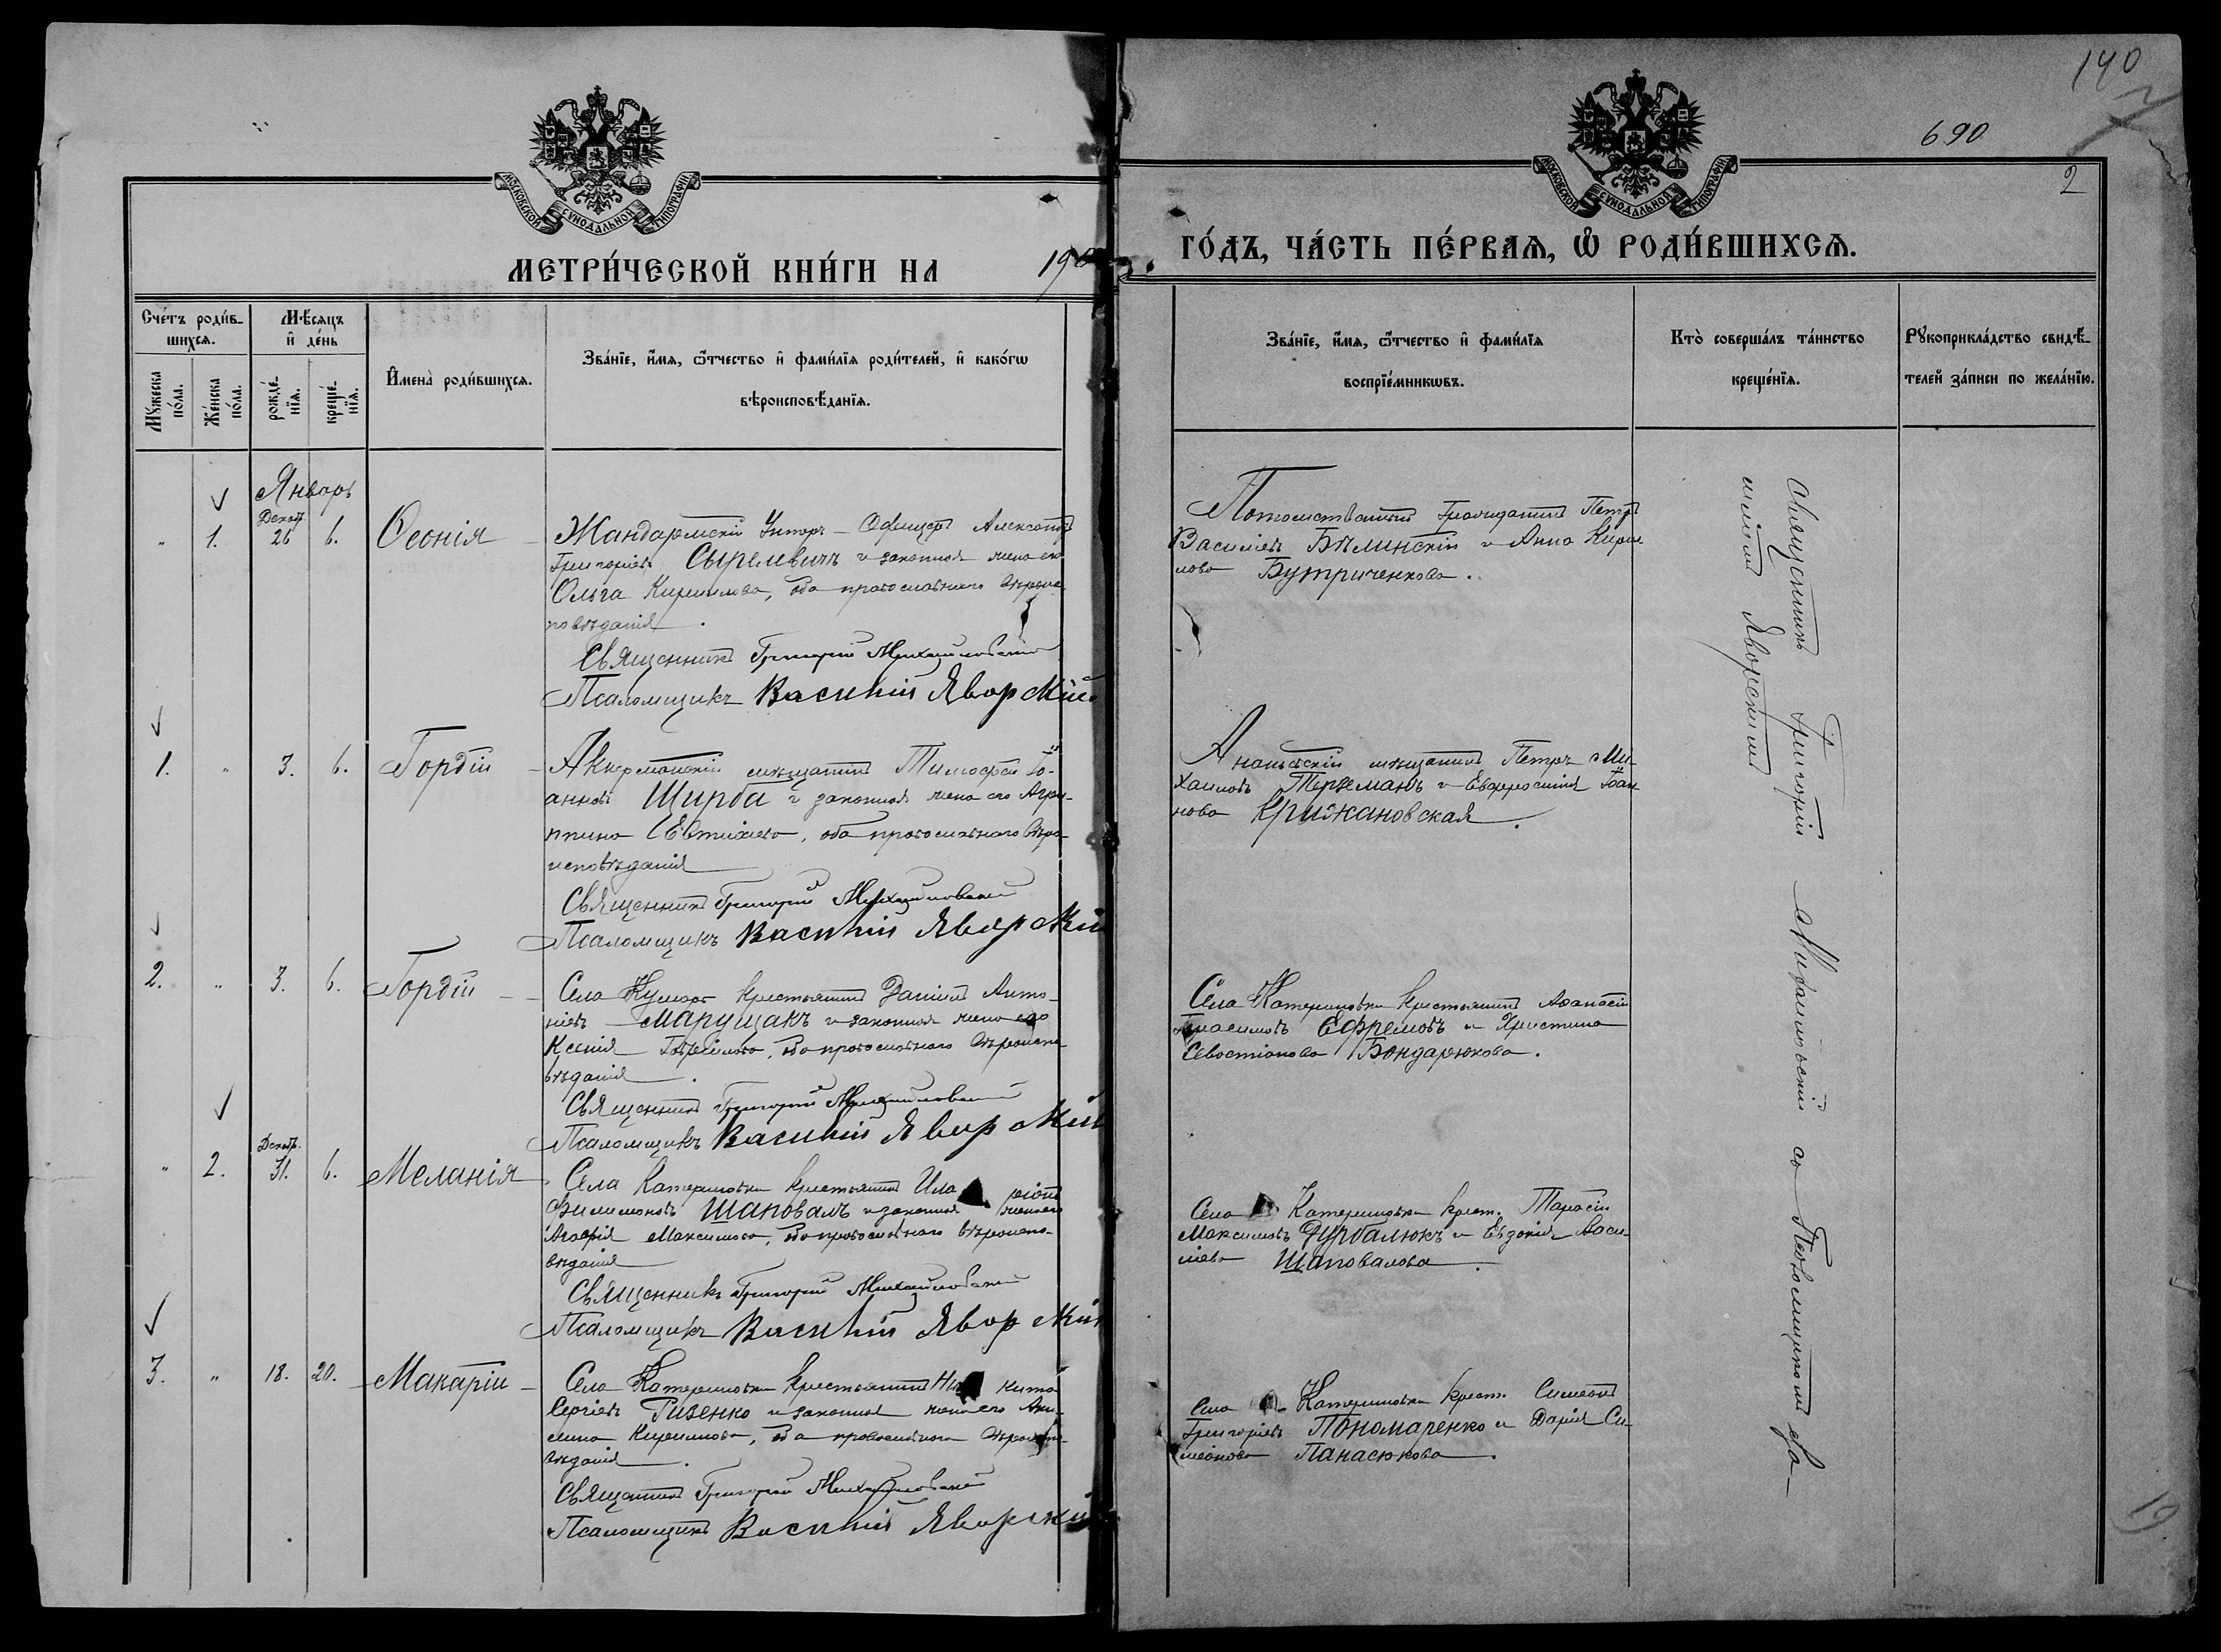 140
690
2
МОСКОВСКОЙ СѴНОДАЛЬНОЙ ТИПОГРАФІИ
МОСКОВСКОЙ СѴНОДАЛЬНОЙ ТИПОГРАФІИ
МЕТРИ́ЧЕСКОЙ КНИ́ГИ НА 190
ГО́ДЪ, ЧА́СТЬ ПЕ́РВАЯ, Ѡ҆ РОДИ́ВШИХСЯ.
Сче́тъ роди́в-
шихся.
Мѣ́сяцъ
и҆ де́нь
Му́жеска по́ла.
Же́нска по́ла.
рожде́-
нїя.
креще́-
нїя.
И҆мена̀ роди́вшихся.
Зва́нїе, и҆́мя, ѻ҆́тчество и҆ фами́лїя роди́телей, и҆ како́гѡ
вѣроисповѣ́данїя.
Зва́нїе, и҆́мя, ѻ҆́тчество и҆ фами́лїя
воспрїе́мникѡвъ.
Кто̀ соверша́лъ та́инство
креще́нїя.
Рꙋкоприкла́дство свидѣ́-
телей за́писи по жела́нїю.
Январь
Декаб.
" 1. 26 6. Ѳеонія
Жандармскій Унтеръ-Офицеръ Александръ
Григоріевъ Сырлевичъ и законная жена его
Ольга Кириллова, оба православнаго вѣроис-
повѣданія.
Священникъ Григорій Михайловскій
Псаломщикъ Василій Яворскій
Потомственный Гражданинъ Петръ
Василіевъ Бѣлинскій и Анна Кирил-
лова Бутриченкова.
1. " 3. 6. Гордій
Аккерманскій мѣщанинъ Тимофей Іо-
анновъ Щирба и законная жена его Агри-
ппина Евтихіева, оба православнаго вѣро-
исповѣданія
Священникъ Григорій Михайловскій
Псаломщикъ Василій Яворскій
Ананьевскій мѣщанинъ Петръ Ми-
хаиловъ Терземанъ и Евфросинія Іоан-
нова Крижановская.
2. " 3. 6. Гордій
Села Кумаръ крестьянинъ Даніилъ Анто-
ніевъ Марущакъ и законная жена его
Ксенія Гавріилова, оба православнаго вѣроиспо-
вѣданія.
Священникъ Григорій Михайловскій
Псаломщикъ Василій Яворскій
Села Катериновки крестьянинъ Аѳанасій
Ефремовъ и Христина
Севастіанова Бондарюкова.
Декаб.
" 2. 31. 6. Меланія
Села Катериновки крестьянинъ Ила ріонъ
Филимоновъ Шаповалъ и законная жена его
Агафія Максимова, оба православнаго вѣроиспо-
вѣданія
Священникъ Григорій Михайловскій
Псаломщикъ Василій Яворскій
Села Катериновки крест. Тарасій
Максимовъ Дурбалюкъ и Евдокія Васи-
ліева Шаповалова.
3. " 18. 20. Макарій
Села Катериновки крестьянинъ Ни кита
Сергіевъ Гизенко и законная жена его Аки-
лина Кириллова, оба православнаго вѣроиспо-
вѣданія.
Священникъ Григорій Михайловскій
Псаломщикъ Василій Яворскій
Села Катериновки крест. Симеонъ
Григоріевъ Пономаренко и Дарія Си-
меонова Панасюкова.
Священникъ Григорій Михайловскій съ Псаломщикомъ Ва-
силіемъ Яворскимъ
19